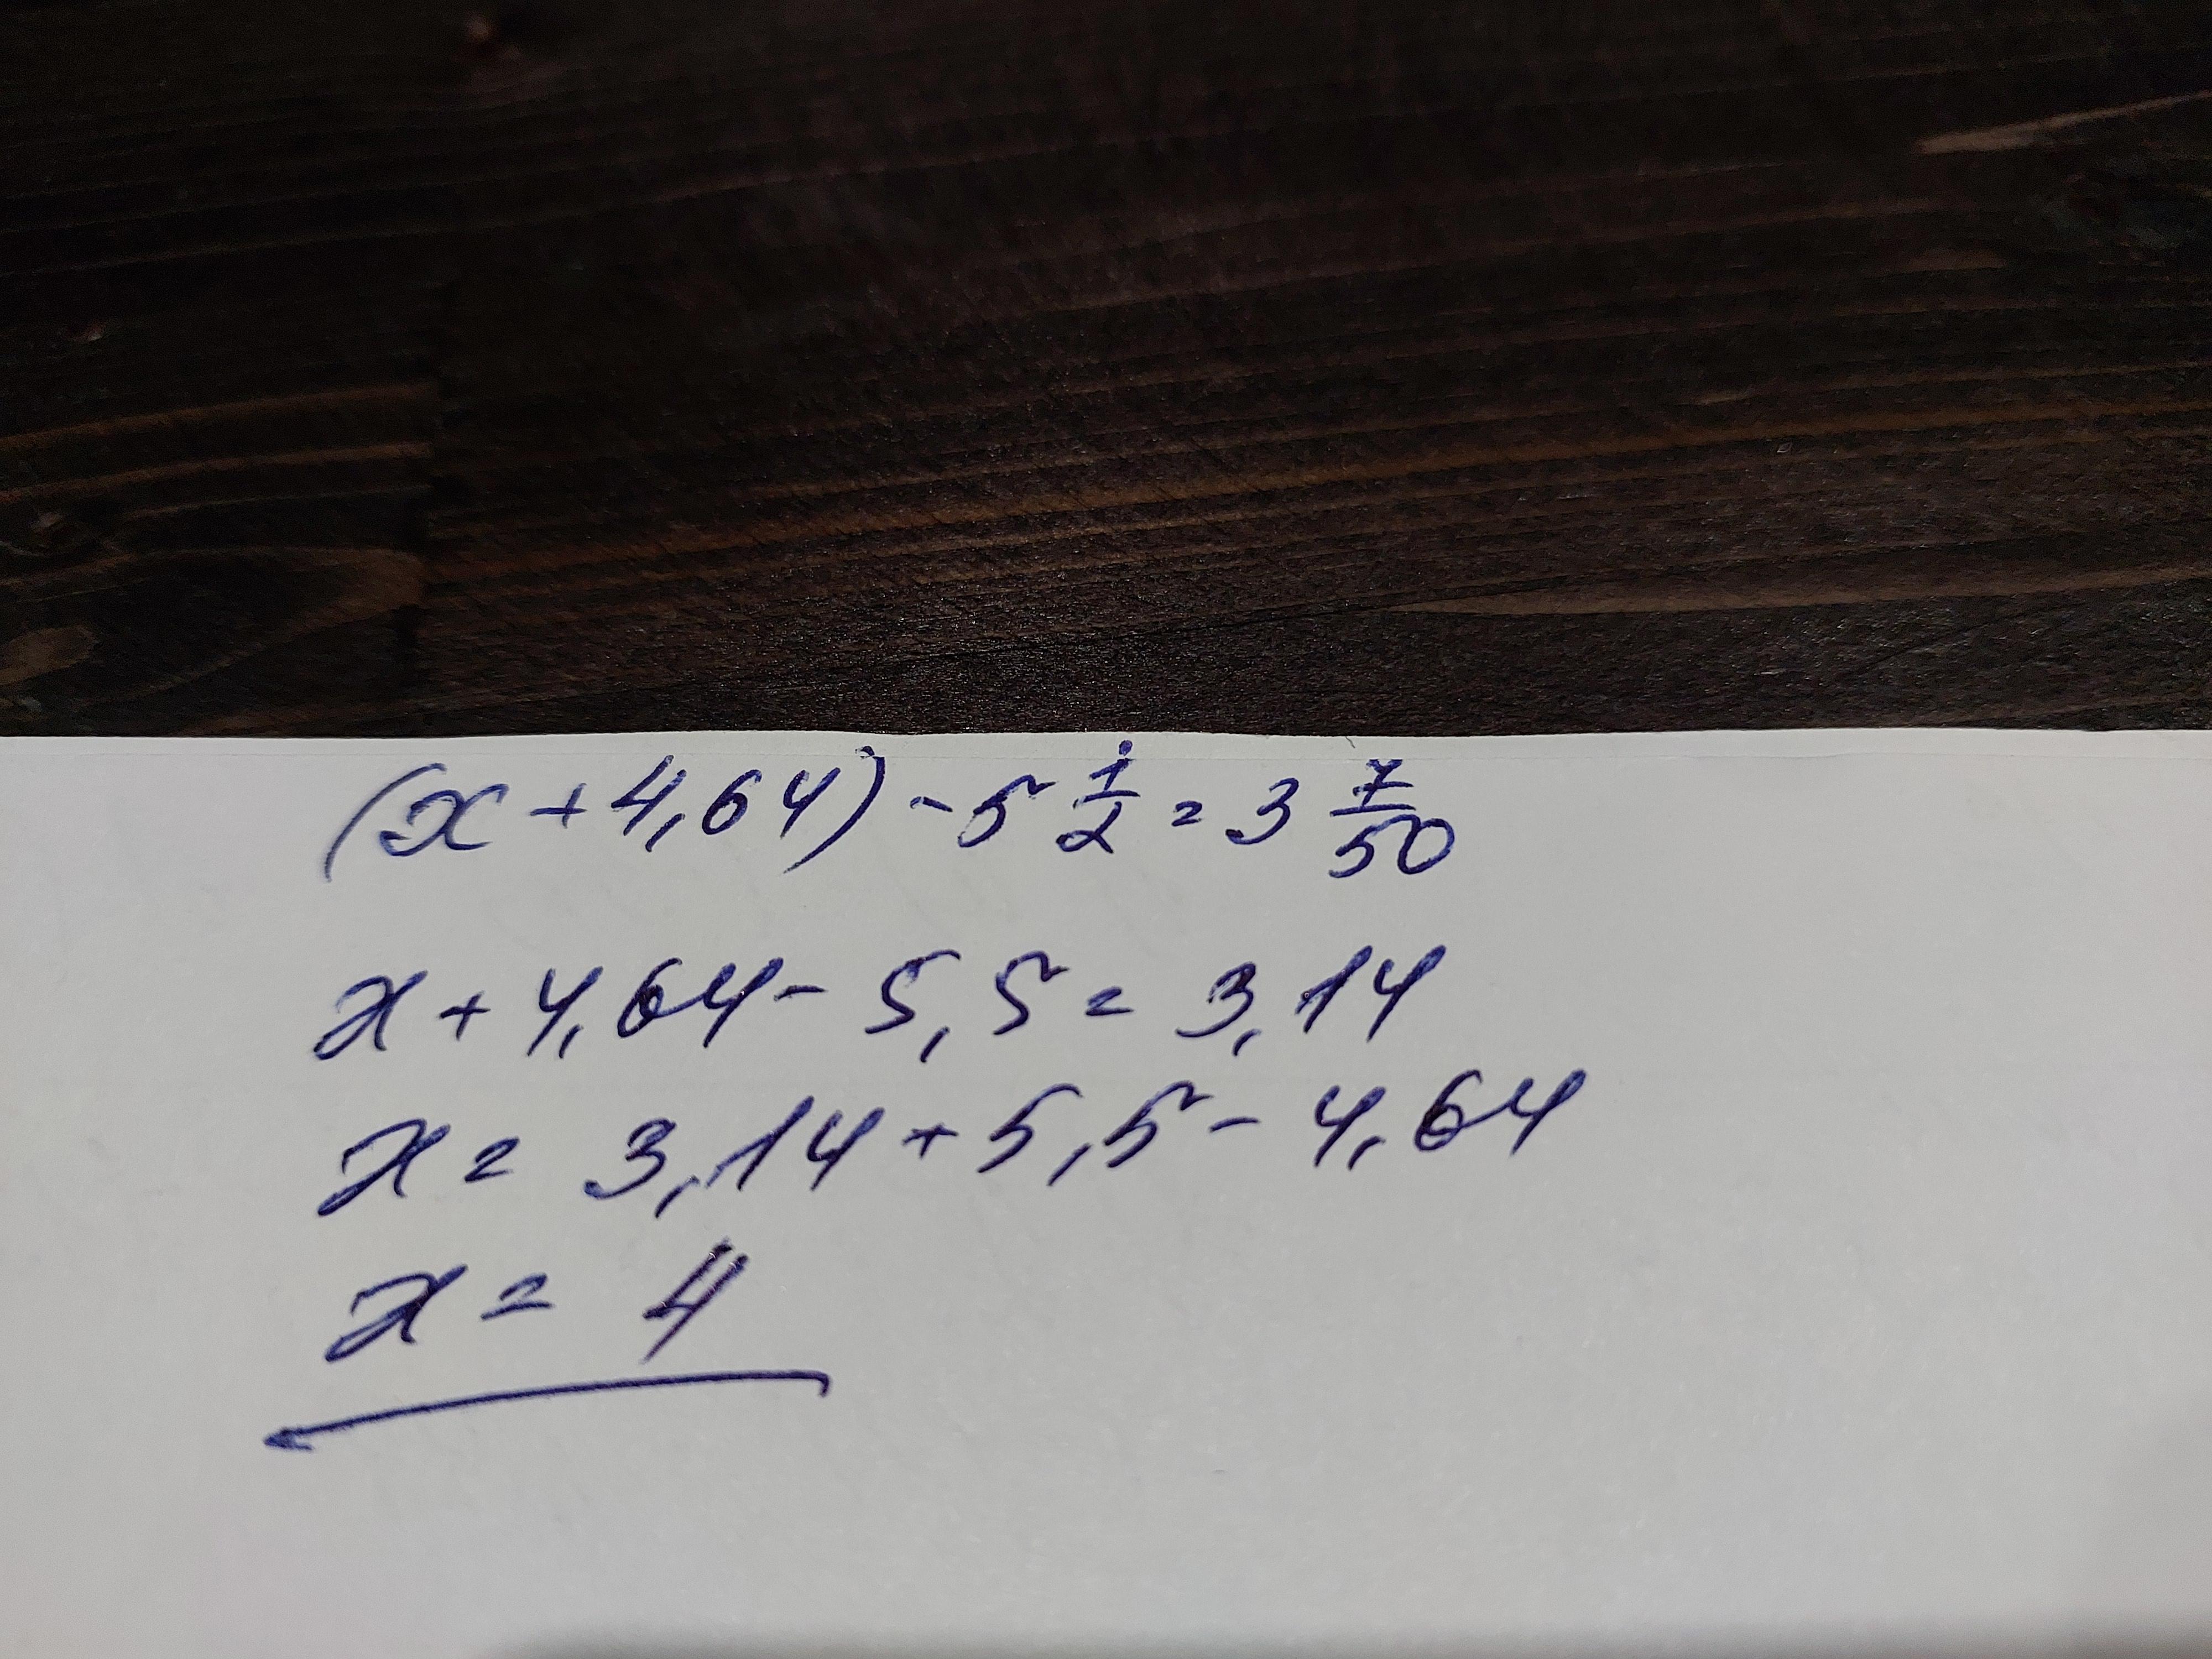 (x + 4,64) - 5 1/2 = 3 7/50
x + 4,64 - 5,5 = 3,14
x = 3,14 + 5,5 - 4,64
x = 4